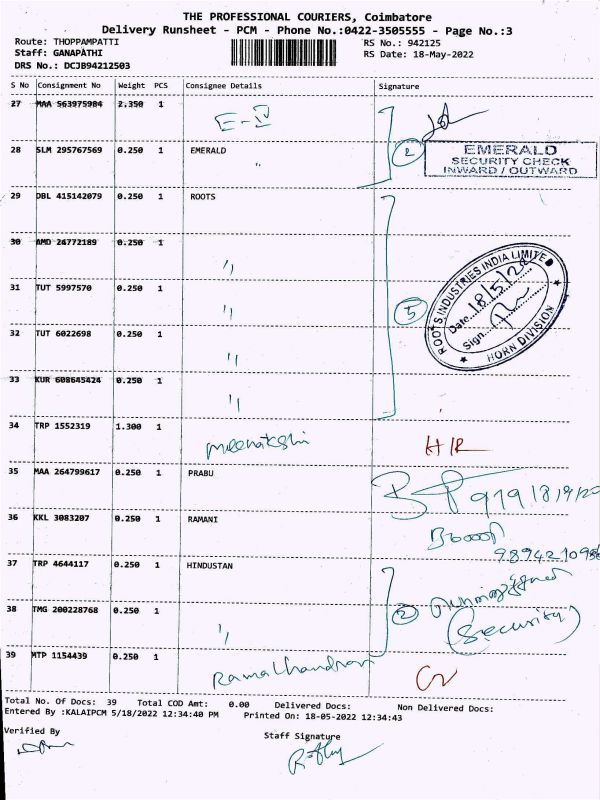 THE PROFESSIONAL COURIERS, Coimbatore
Delivery Runsheet - PCM - Phone No.:0422-3505555 - Page No.:3
Route: THOPPAMPATTI RS No.: 942125
Staff: GANAPATHI RS Date: 18-May-2022
DRS No.: DCJB94212503
S No Consignment No Weight PCS Consignee Details Signature
27 MAA 563975984 2.350 1
28 SLM 295767569 0.250 1 EMERALD 2
"
EMERALD
SECURITY CHECK
INWARD / OUTWARD
29 DBL 415142079 0.250 1 ROOTS
30 AMD 24772189 0.250 1
"
31 TUT 5997570 0.250 1
" 5
ROOTS INDUSTRIES INDIA LIMITED
Date 18/5/22
Sign.
HORN DIVISION
32 TUT 6022698 0.250 1
"
33 KUR 608645424 0.250 1
"
34 TRP 1552319 1.300 1
meenakshi
35 MAA 264799617 0.250 1 PRABU
36 KKL 3083207 0.250 1 RAMANI
37 TRP 4644117 0.250 1 HINDUSTAN
38 TMG 200228768 0.250 1 2
" (Security)
39 MTP 1154439 0.250 1
Ramachandran
Total No. Of Docs: 39 Total COD Amt: 0.00 Delivered Docs: Non Delivered Docs:
Entered By :KALAIPCM 5/18/2022 12:34:40 PM Printed On: 18-05-2022 12:34:43
Verified By Staff Signature